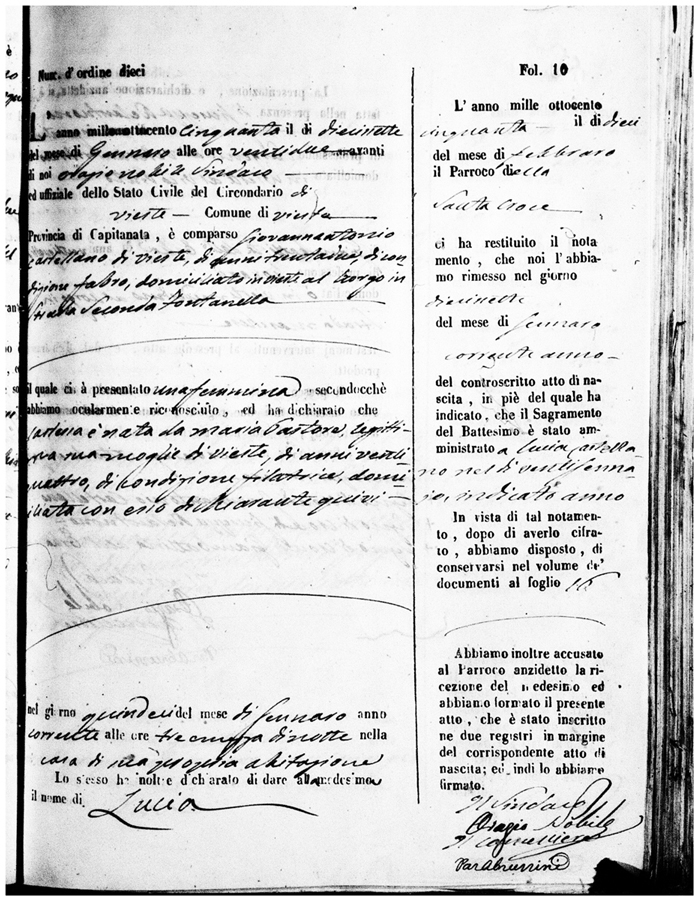 Num. d'ordine dieci
L'anno milleottocento cinquanta il di diecisette
del mese di Gennaro alle ore ventidue avanti
di noi Biagio Nobile Sindaco
ed uffiziale dello Stato Civile del Circondario di
Vieste Comune di Vieste
Provincia di Capitanata, è comparso Giovannantonio
Castellano di Vieste, di anni trentadue, di con-
dizione fabro, domiciliato in Vieste al Borgo in
strada Seconda Fontanella
il quale ci à presentato una femmina secondocchè
abbiamo ocularmente riconosciuto, ed ha dichiarato che
la stessa è nata da Maria Pastore, legitti-
ma sua moglie di Vieste, di anni venti-
quattro, di condizione filatrice, domi-
ciliata con esso dichiarante quivi
nel giorno quindeci del mese di Gennaro anno
corrente alle ore tre e mezza di notte nella
casa di sua propria abitazione
Lo stesso ha inoltre dichiarato di dare alla medesima
il nome di Lucia
Fol. 10
L'anno mille ottocento
cinquanta il di dieci
del mese di Febbraro
il Parroco della
Santa Croce
ci ha restituito il nota
mento, che noi l'abbia-
mo rimesso nel giorno
diecisette
del mese di Gennaro
corrente anno
del controscritto atto di na-
scita, in piè del quale ha
indicato, che il Sagramento
del Battesimo è stato am-
ministrato a Lucia Castella-
no nel di venti Genna-
jo, indicato anno
In vista di tal notamen-
to, dopo di averlo cifra-
to, abbiamo disposto, di
conservarsi nel volume de'
documenti al foglio 16
Abbiamo inoltre accusato
al Parroco anzidetto la ri-
cezione del medesimo ed
abbiamo formato il presente
atto, che è stato inscritto
ne due registri in margine
del corrispondente atto di
nascita; ed indi lo abbiamo
firmato.
Il Sindaco
Biagio Nobile
Il Cancelliere
Par Abruzzini